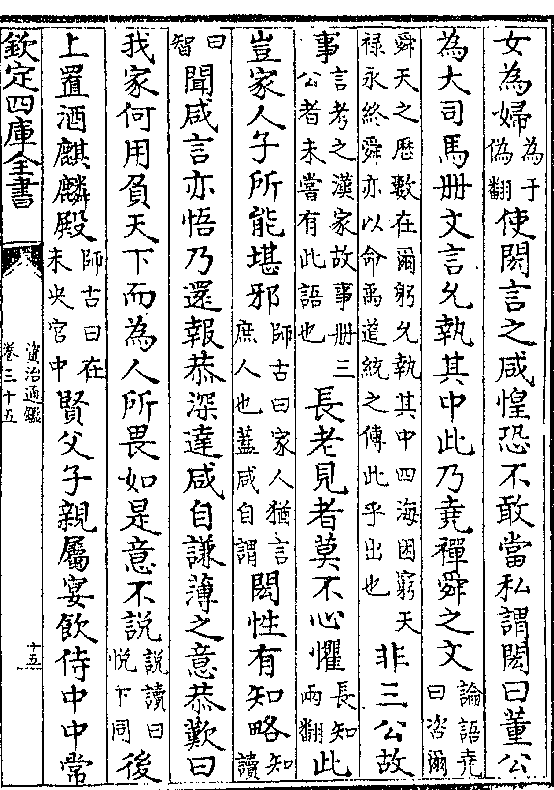 女為婦為于偽翻使閎言之咸惶恐不敢當私謂閎曰董公
為大司馬册文言允執其中此乃堯禪舜之文論語堯曰咨爾
舜天之厯數在爾躬允執其中四海困窮天祿永終舜亦以命禹道統之傳此乎出也非三公故
事言考之漢家故事册三公者未嘗有此語也長老見者莫不心懼長知兩翻此
豈家人子所能堪邪師古曰家人猶言庶人也蓋咸自謂閎性有知略知讀
曰智聞咸言亦悟乃還報恭深達咸自謙薄之意恭歎曰
我家何用負天下而為人所畏如是意不說說讀曰悅下同後
上置酒麒麟殿師古曰在未央宮中賢父子親屬宴飲侍中中常
欽定四庫全書
資治通鑑
卷三十五
十五